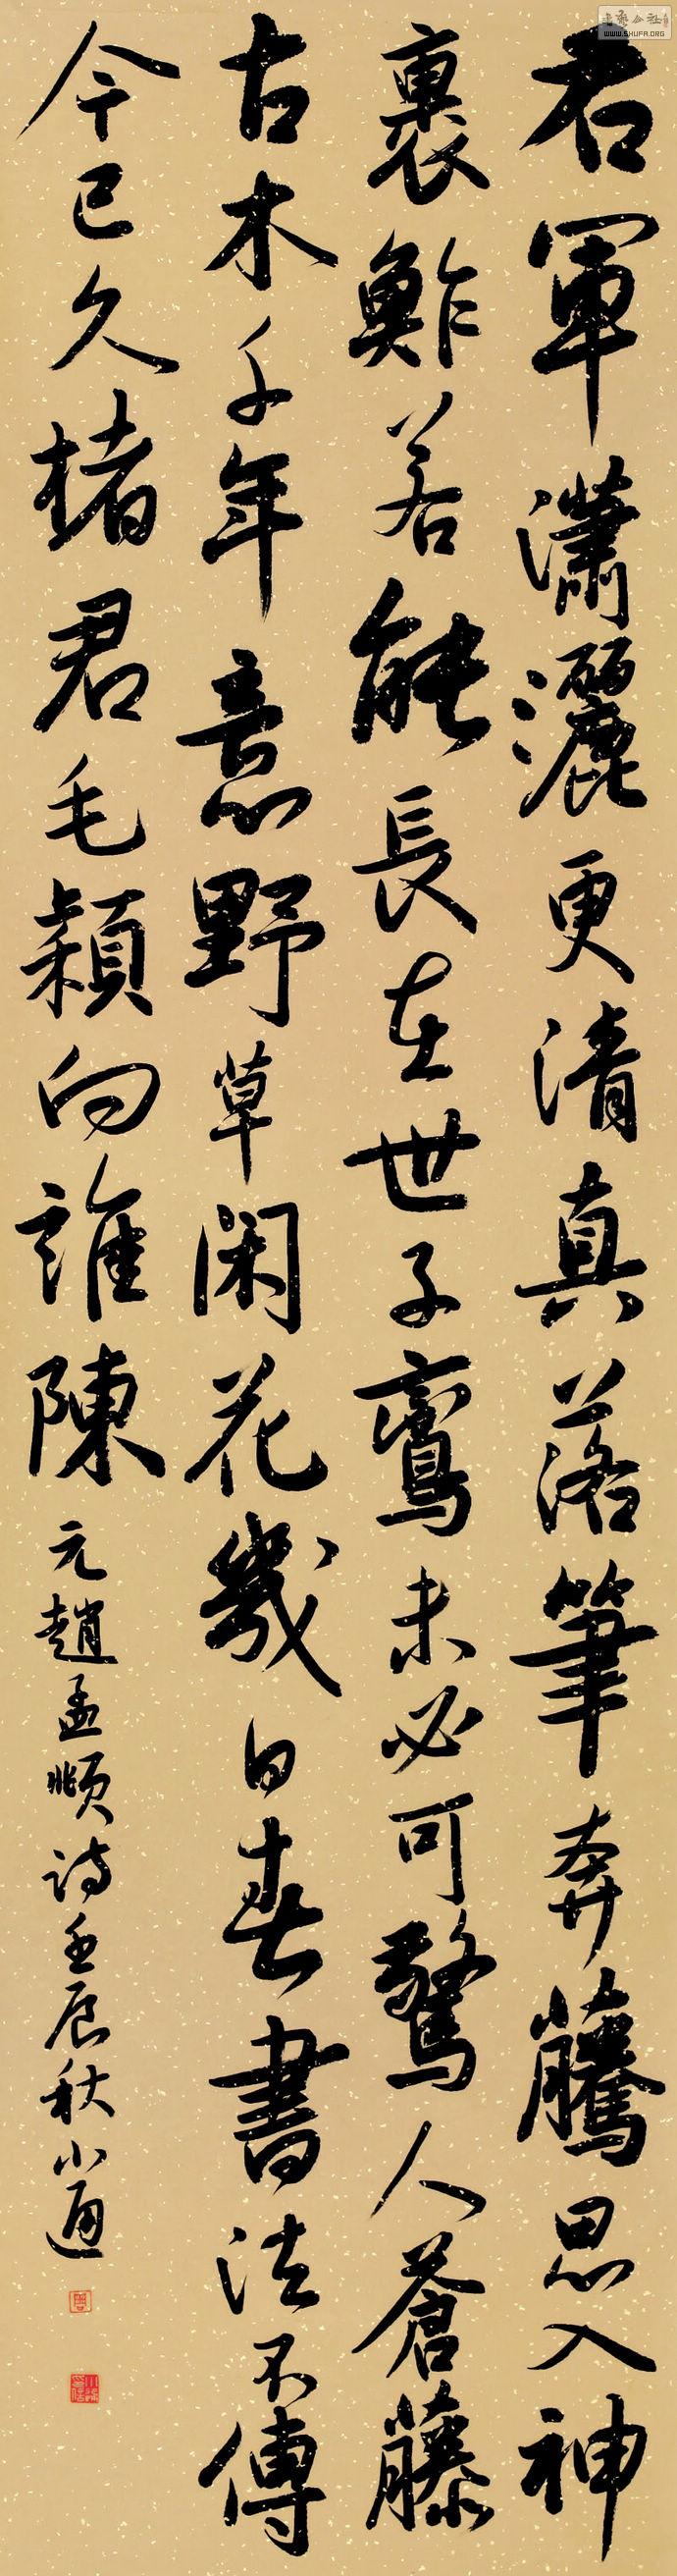 右軍瀟灑更清真落筆奔騰思入神
裹鮓若能長在世子鸞未必可驚人蒼藤
古木千年意野草閑花幾日春書法不傳
今已久楮君毛穎向誰陳
元趙孟頫詩壬辰秋小
WWW.SHUFA.ORG